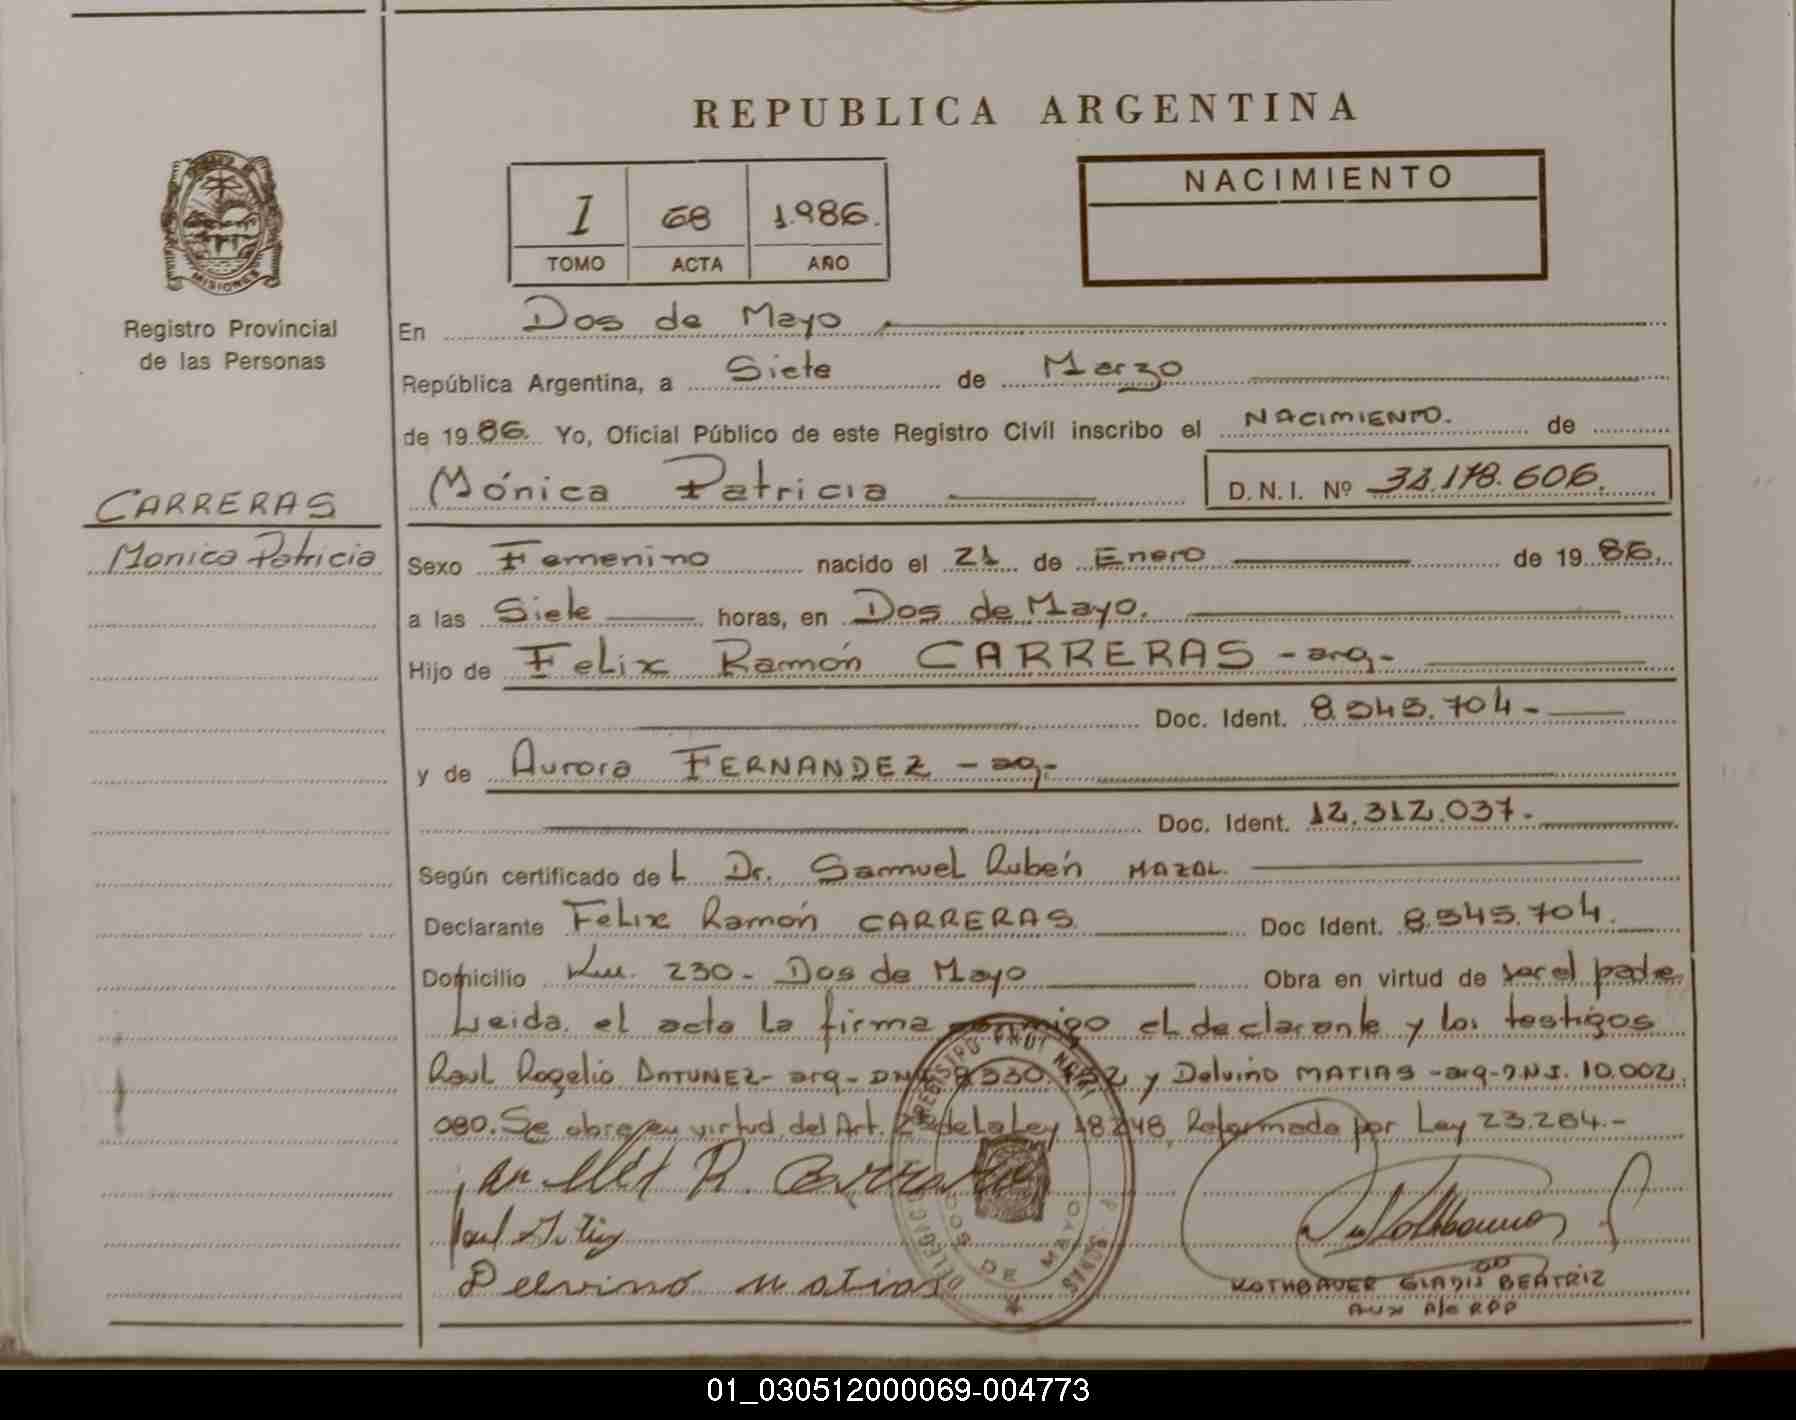 REPUBLICA ARGENTINA
I 68 1.986.
TOMO ACTA AÑO
NACIMIENTO
MISIONES
Registro Provincial
de las Personas
CARRERAS
Monica Patricia
En Dos de Mayo
República Argentina, a Siete de Marzo
de 19 86. Yo, Oficial Público de este Registro Civil inscribo el NACIMIENTO. de
Mónica Patricia D.N.I. Nº
Sexo Femenino nacido el 21 de Enero de 19 86.
a las Siete horas, en Dos de Mayo.
Hijo de Felix Ramón CARRERAS - arg-
Doc. Ident. 8.545.704-
y de Aurora FERNANDEZ - ag-
Doc. Ident. 12.312.037.-
Según certificado de L Dr. Samuel Rubén MAZAL.
Declarante Felix Ramón CARRERAS Doc Ident. 8.545.704.
Domicilio Km. 230- Dos de Mayo Obra en virtud de ser el padre
Leida el acta la firma conmigo el declarante y los testigos
Raul Rogelio - arg- y Delvino MATIAS -arg- DNI. 10.002.
080. Se obra en virtud del Art. de la Ley 18248 Reformada por Ley 23.264.-
Delvino Matias
KOTHBAUER GLADIS BEATRIZ
AUX A/c RPP
DOS DE MAYO
01_030512000069-004773